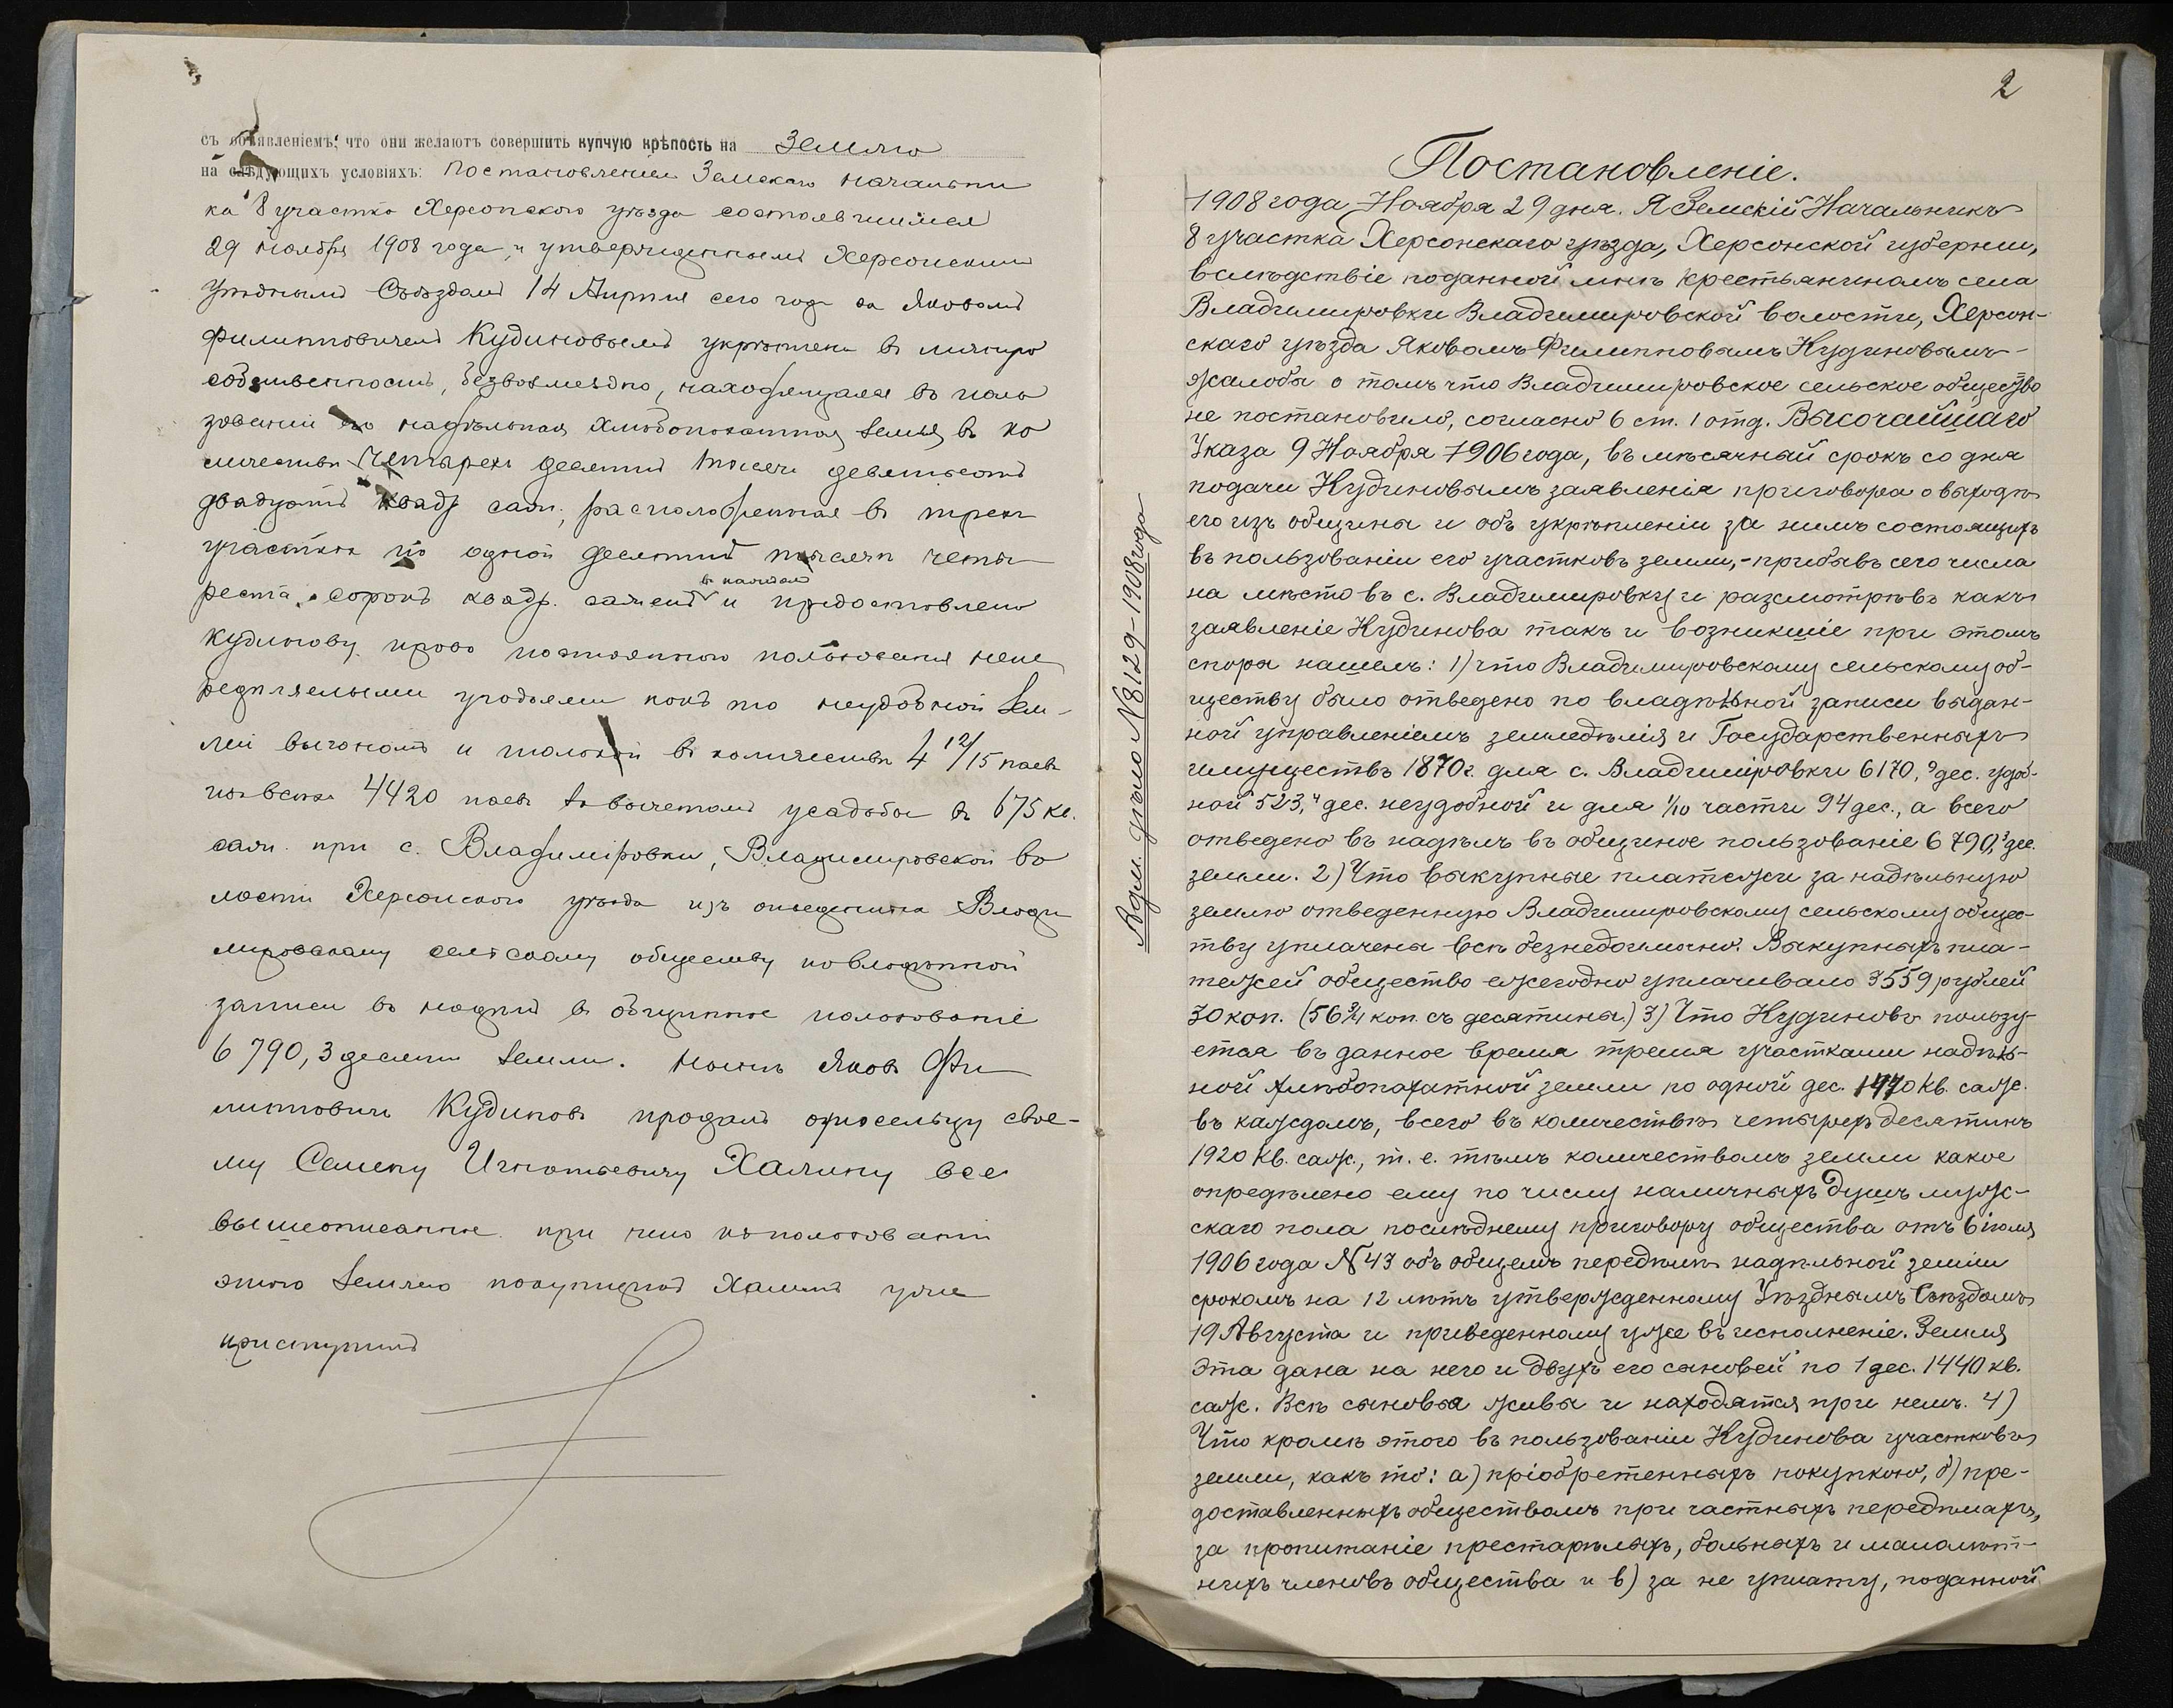 съ объявленіемъ, что они желаютъ совершить купчую крѣпость на Землю
на слѣдующихъ условіяхъ: Постановленіемъ Земскаго Начальни
ка 8 участка Херсонскаго уѣзда состоявшимся
29 Ноября 1908 года, и утвержденнымъ Херсонскимъ
уѣзднымъ Съѣздомъ 14 Апрѣля сего года за Яковомъ
Филипповичемъ Кудиновымъ укрѣплена въ личную
собственность, безвозмездно, находящаяся въ поль
зованіи его надѣльная хлѣбопахатная земля въ ко
личествѣ четырехъ десятинъ тысячи девятисотъ
двадцати квадр саж., расположенная въ трехъ
участкахъ по одной десятинѣ тысячи четы
реста сорокъ квадр. сажень въ каждомъ и предоставлено
Кудинову право постояннаго пользованія непе
редѣляемыми угодьями какъ то неудобной зем-
лей выгономъ и толокой въ количествѣ 4 12/15 паевъ
изъ всѣхъ 4420 паевъ за вычетомъ усадьбы въ 675 кв.
саж. при с. Владиміровки, Владимировской во
лости Херсонскаго уѣзда изъ отведенныхъ Влади
мировскому сельскому обществу по владѣнной
записи въ надѣлъ въ общинное пользованіе
6790,3 десятин земли. Нынѣ Яковъ Фи
липповичъ Кудиновъ продалъ односельцу свое-
му Семену Игнатьевичу Халину все
вышеописанное при чемъ къ пользованію
этою землею покупщикъ Халинъ уже
приступилъ
2
Постановленіе.
1908 года Ноября 29 дня. Я Земскій Начальникъ
8 участка Херсонскаго уѣзда, Херсонской губерніи,
вслѣдствіе поданной мнѣ крестьяниномъ села
Владимировки Владимировской волости, Херсон-
скаго уѣзда Яковомъ Филипповымъ Кудиновымъ-
жалобы о томъ что Владимировское сельское общество
не постановило, согласно 6 ст. 1 отд. Высочайшаго
Указа 9 Ноября 1906 года, въ мѣсячный срокъ со дня
подачи Кудиновымъ заявленія приговора о выходѣ
его изъ общины и объ укрѣпленіи за нимъ состоящихъ
въ пользованіи его участковъ земли,- прибывъ сего числа
на мѣсто въ с. Владимировку и разсмотрѣвъ какъ
заявленіе Кудинова такъ и возникшіе при этомъ
споры нашелъ: 1) что Владимировскому сельскому об-
ществу было отведено по владѣнной записи выдан-
ной управленіемъ земледѣлія и Государственныхъ
имуществъ 1870 г. для с. Владимировки 6170,9 дес. удоб-
ной 523,4 дес. неудобной и для 1/10 части 94 дес., а всего
отведено въ надѣлъ въ общинное пользованіе 6790,3 дес.
земли. 2) Что выкупные платежи за надѣльную
землю отведенную Владимировскому сельскому общес-
тву уплачены всѣ безнедоимочно. Выкупныхъ пла-
тежей общество ежегодно уплачивало 3559 рублей
30 коп. (56 3/4 коп. съ десятины.) 3) Что Кудиновъ пользу-
ется въ данное время тремя участками надѣль-
ной хлѣбопахатной земли по одной дес. 1440 кв. саж.
въ каждомъ, всего въ количествѣ четырехъ десятинъ
1920 кв. саж., т. е. тѣмъ количествомъ земли какое
опредѣлено ему по числу наличныхъ душъ муж-
скаго пола послѣднему приговору общества отъ 6 іюля
1906 года № 43 объ общемъ передѣлѣ надѣльной земли
срокомъ на 12 лѣтъ утвержденному Уѣзднымъ Съѣздомъ
19 Августа и приведенному уже въ исполненіе. Земля
эта дана на него и двухъ его сыновей по 1 дес. 1440 кв.
саж. Всѣ сыновья живы и находятся при немъ. 4)
Что кромѣ этого въ пользованіи Кудинова участковъ
земли, какъ то: а) пріобретенныхъ покупкою, б) пре-
доставленныхъ обществомъ при частныхъ передѣлахъ,
за пропитаніе престарѣлыхъ, больныхъ и малолѣт-
нихъ членовъ общества и в) за не уплату, поданной
Адм. дѣло № 8129-1908 года